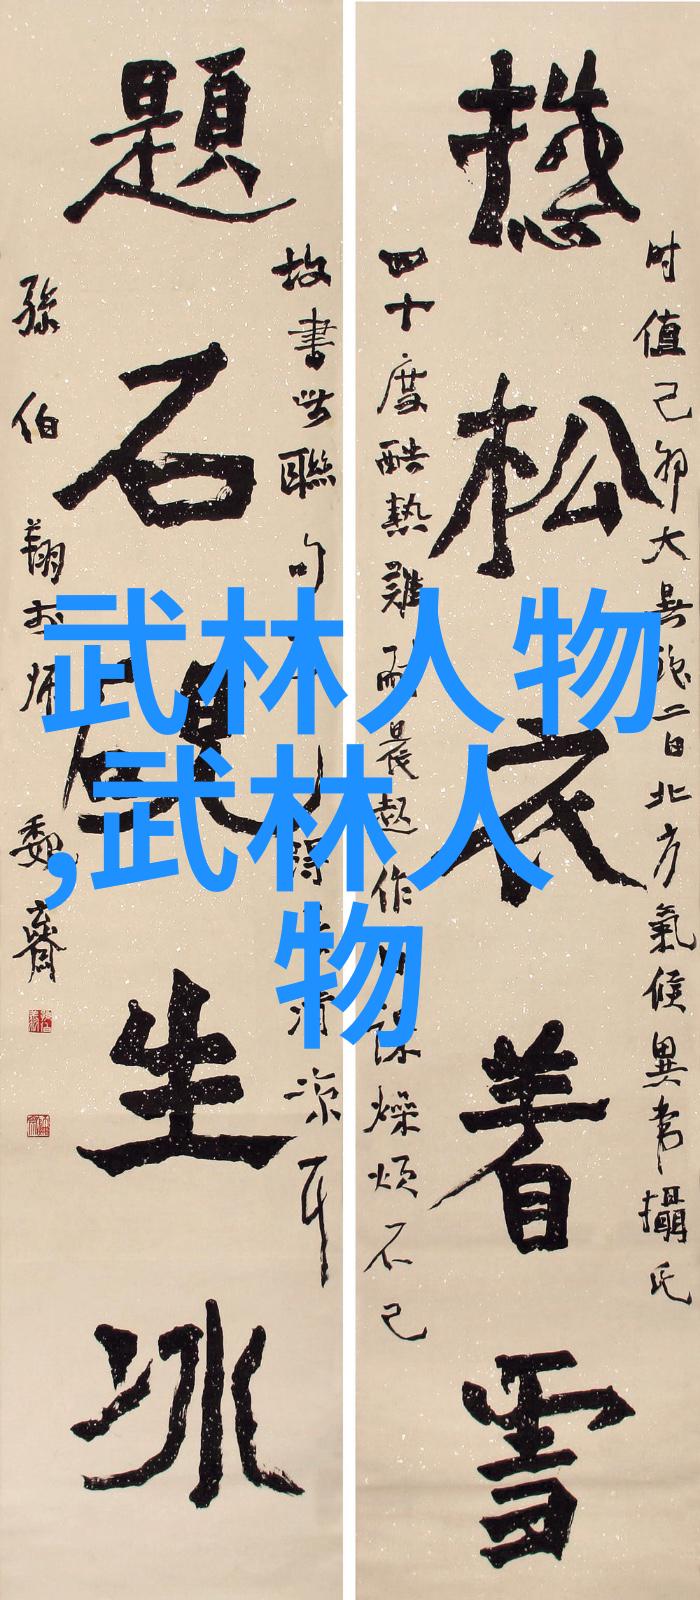 时值己卯大暑後二日北方氣候異常攝氏
松衣着雪
四十度酷熱難耐晨起作燥煩不已
故書此聯句清凉耳
題石硯生冰
孫伯翔於師魏齋
武林人物
,武林人
物